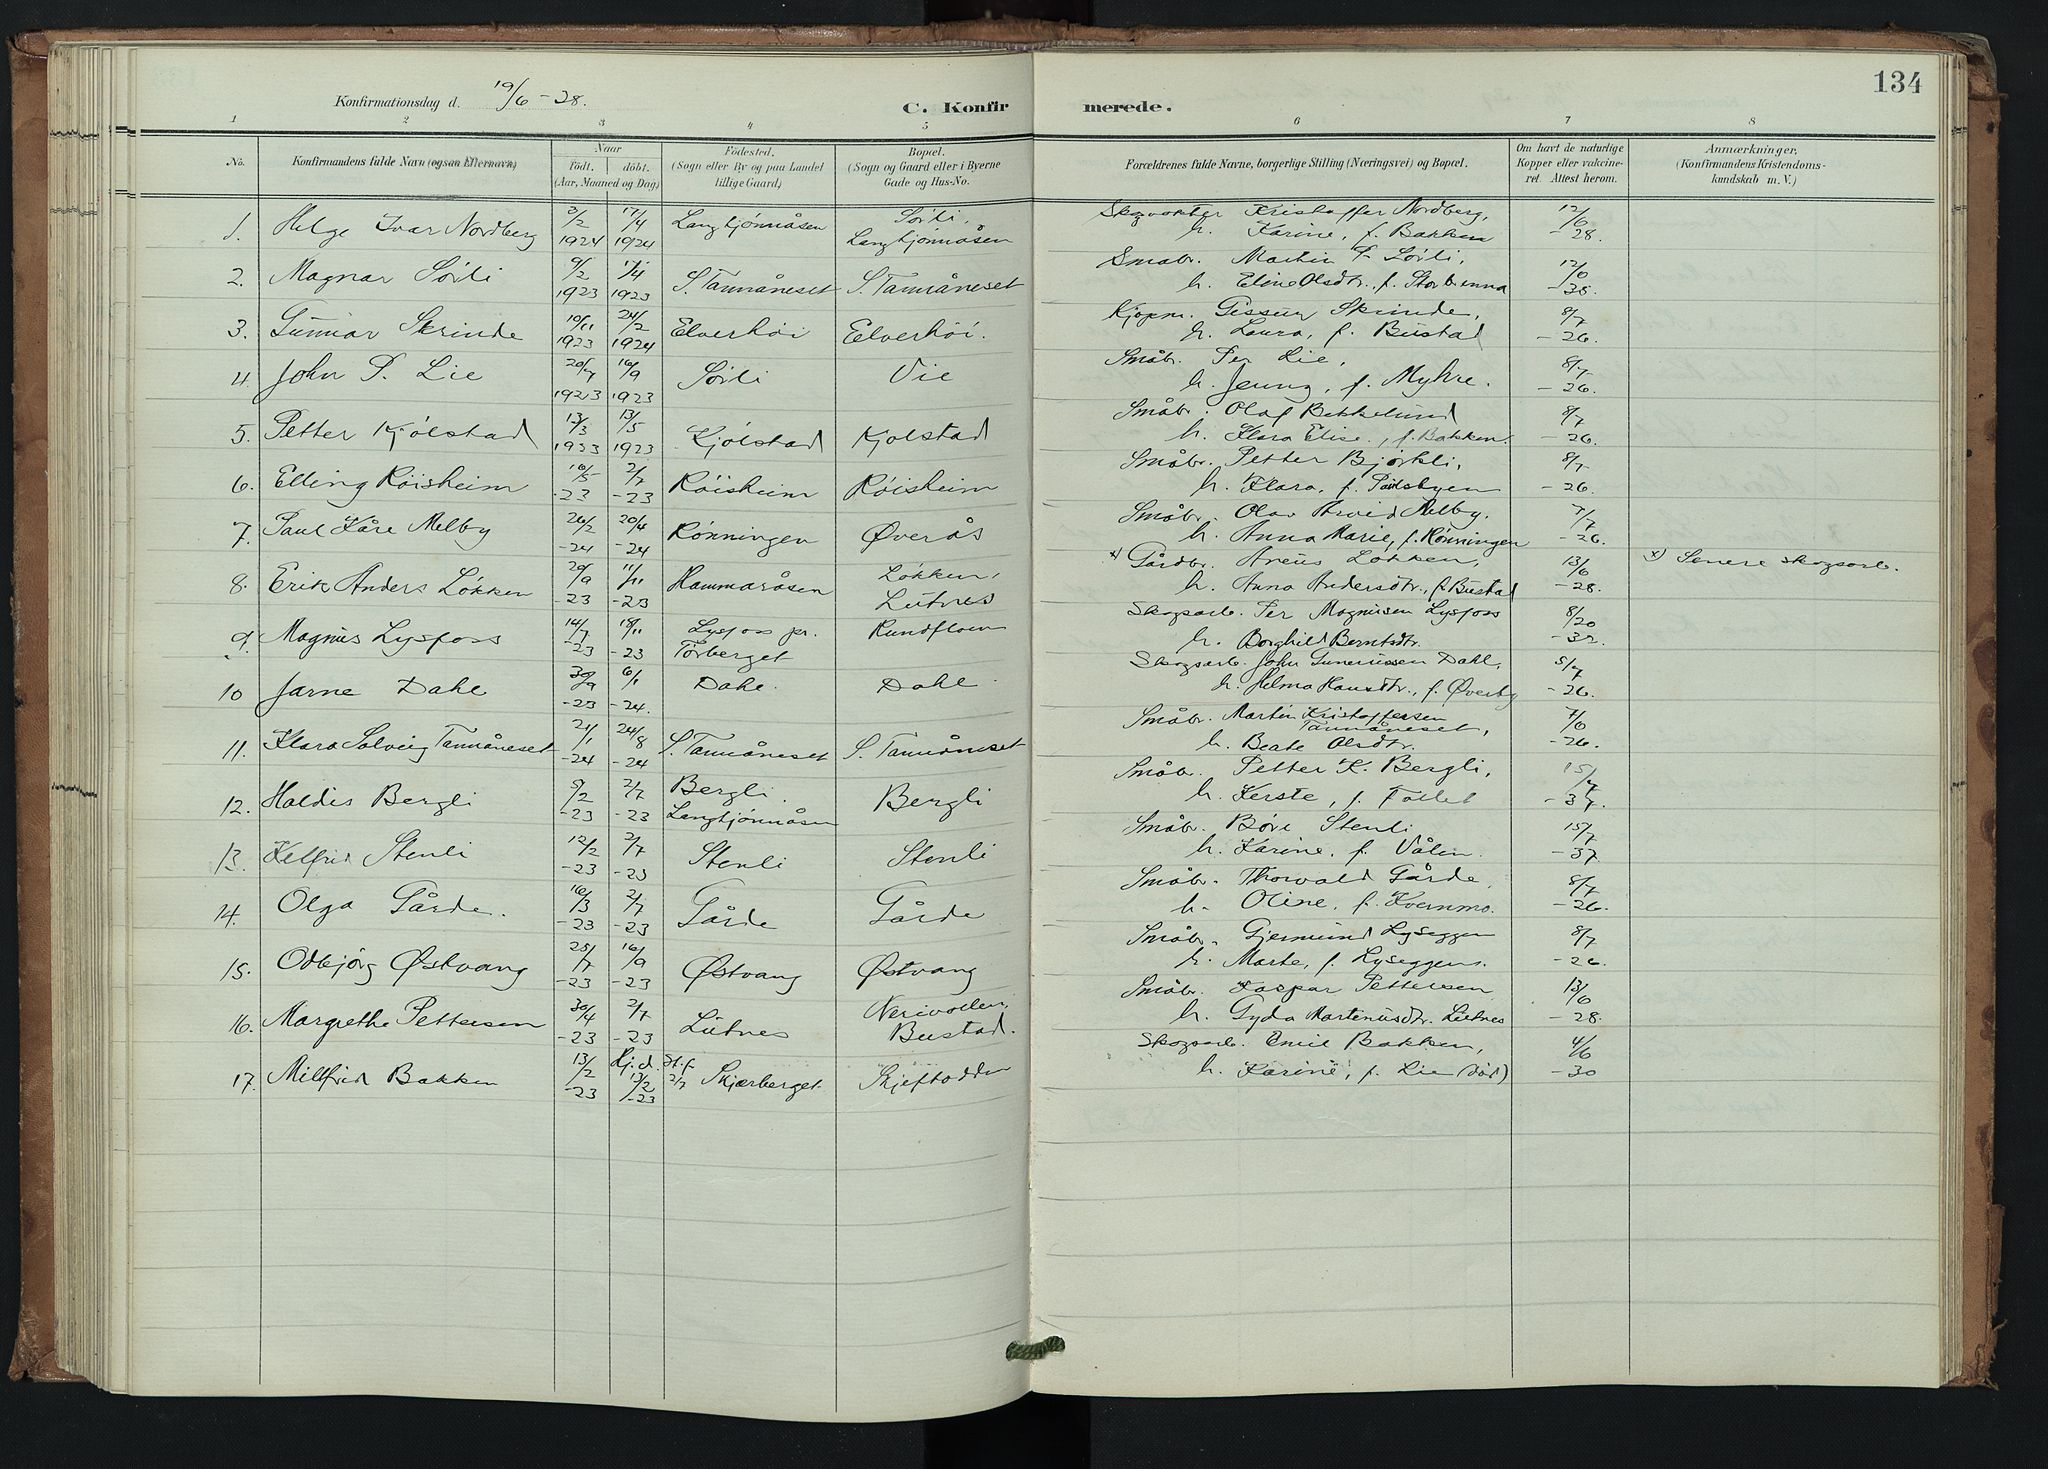 134
Konfirmationsdag d. 19/6 - 38.
C. Konfirmerede.
1 2 3 4 5 6 7 8
No. Konfirmandens fulde Navn (ogsaa Efternavn) Naar født. døbt. (Aar, Maaned og Dag) Fødested. (Sogn eller By og paa Landet tillige Gaard) Bopæl. (Sogn og Gaard eller i Byerne Gade og Hus-No. Forældrenes fulde Navne, borgerlige Stilling (Næringsvei) og Bopæl. Om havt de naturlige Kopper eller vakcineret. Attest herom. Anmærkninger. (Konfirmandens Kristendomskundskab m. V.)
1. Helge Ivar Nordberg 3/2 1924 17/4 1924 Langtjönnåsen Sörli, Langtjönnåsen Skogvokter Kristoffer Nordberg, 12/6
h. Karine, f. Bakken -28.
2. Magnar Sörli 9/2 1923 1923 S. Tannåneset S. Tannåneset Småbr. Martin P. Sörli,
h. Eline Olsdtr., f. Storbrenna -38
3. Gunnar Skrinde 10/11 1923 24/2 1924 Elverhöi Elverhöi. Kjöpm. Gissur Skrinde, 8/7
h. Laura, f. Bustad -26.
4. John P. Lie 20/7 1923 16/9 1923 Sörli Vie Småbr. Per Lie, 8/7
h. Jenny, f. Myhre. -26.
5. Petter Kjölstad 13/3 1923 13/5 1923 Kjölstad Kjölstad Småbr. Olaf Bekkelund 8/7
h. Klara Elise, f. Bakken. -26.
6. Elling Röisheim 16/5 -23 2/7 -23 Röisheim Röisheim Småbr. Petter Björkli, 8/7
h. Klara, f. -26.
7. Paul Kåre Melby 26/2 -24 20/4 -24 Rönningen Øverås Småbr. Olav Arvid Melby. 7/7
h. Anna Marie, f. Rönningen -26.
8. Erik Anders Løkken 20/9 -23 11/11 -23 Hammaråsen Løkken, Lutnes x) Gårdbr. Løkken, 13/6 x) Senere skogsarb.
h. Anna Andersdtr., f. Bustad -28.
9. Magnus Lysfoss 14/7 -23 18/11 -23 Lysfoss pr. Törberget Rundfloen Skogsarb. Per Magnusen Lysfoss 8/20
h. Borghild Berntsdtr. -32
10 Jarne Dahl 30/9 -23 6/1 -24. Dahl. Dahl. Skogsarb. John Gunerussen Dahl, 5/7
h. Helma Hansdtr., f. Øverby -26.
11. Klara Solveig Tannåneset 21/1 -24 24/8 -24 S. Tannåneset S. Tannåneset Småbr. Martin Kristoffersen Tannåneset,
h. Beate Olsdtr. -26.
12. Haldis Bergli 5/2 -23 2/7 -23 Bergli Langtjönnåsen Bergli Småbr. Petter K. Bergli, 15/7
h. Kerste, f. -37.
13. Stenli 12/2 -23 2/7 -23 Stenli Stenli Småbr. Böre Stenli 15/7
h. Karine, f. Vålen. -37.
14. Olga Gårde. 16/3 -23 2/7 -23 Gårde Gårde Småbr. Thorvald Gårde, 8/7
h. Oline, f. Kvernmo. -26.
15. Odbjörg Østvang 25/7 -23 16/9 -23 Østvang Østvang Småbr. Gjermund Lyseggen 8/7
h. Marte, f. Lyseggen. -26.
16. Margrethe Pettersen 30/4 -23 2/7 -23 Lutnes Nerivollen, Bustad. Småbr. Kaspar Pettersen 13/6
h. Gyda Martinusdtr. Lutnes -28.
17. Millfrid Bakken 13/2 -23 Hj.d. 17/2 -23 St.f. 2/7 Skjærberget Skjeftodden Skogsarb. Emil Bakken, 4/6
h. Karine, f. Lie (død) -30